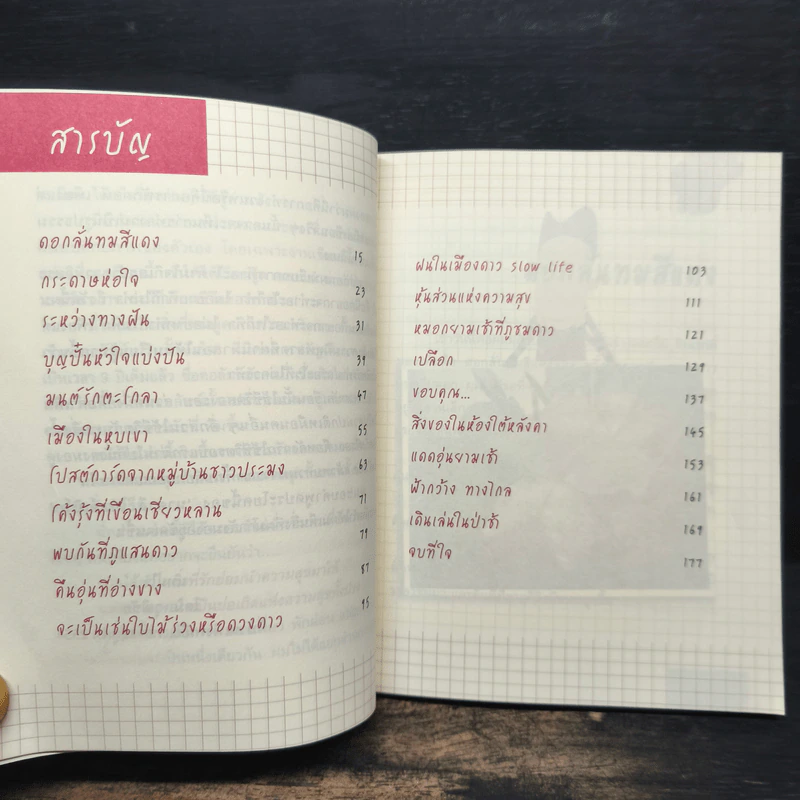 สารบัญ
ดอกลั่นทมสีแดง 15
กระดาษห่อใจ 23
ระหว่างทางฝัน 31
บุญปั๋นหัวใจแบ่งปัน 39
มนต์รักตะโกลา 47
เมืองในหุบเขา 55
โปสต์การ์ดจากหมู่บ้านชาวประมง 63
โค้งรุ้งที่เขื่อนเชี่ยวหลาน 71
พบกันที่ภูแสนดาว 79
คืนอุ่นที่อ่างขาง 87
จะเป็นเช่นใบไม้ร่วงหรือดวงดาว 95
ฝนในเมืองดาว slow life 103
หุ้นส่วนแห่งความสุข 111
หมอกยามเช้าที่ภูชมดาว 121
เปลือก 129
ขอบคุณ... 137
สิ่งของในห้องใต้หลังคา 145
แดดอุ่นยามเช้า 153
ฟ้ากว้าง ทางไกล 161
เดินเล่นในป่าช้า 169
จบที่ใจ 177